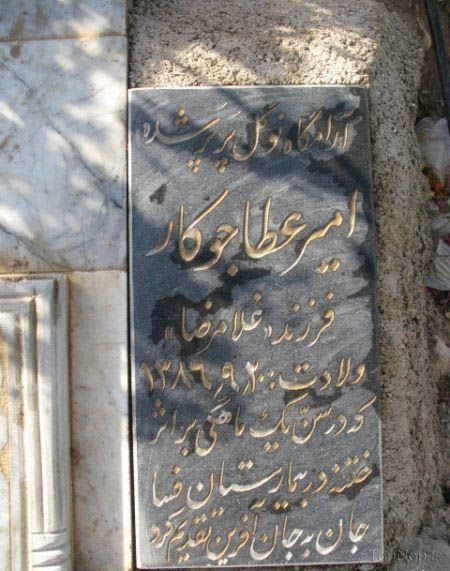 آرامگاه نوگل پَرپَر شده
امیر عطا جوکار
فرزند «غلامرضا»
ولادت: ۱۳۸۶٫۹٫۲۰
که در سنّ یک ماهگی بر اثر
ختنه در بیمارستان فسا
جان به جان آفرین تقدیم کرد